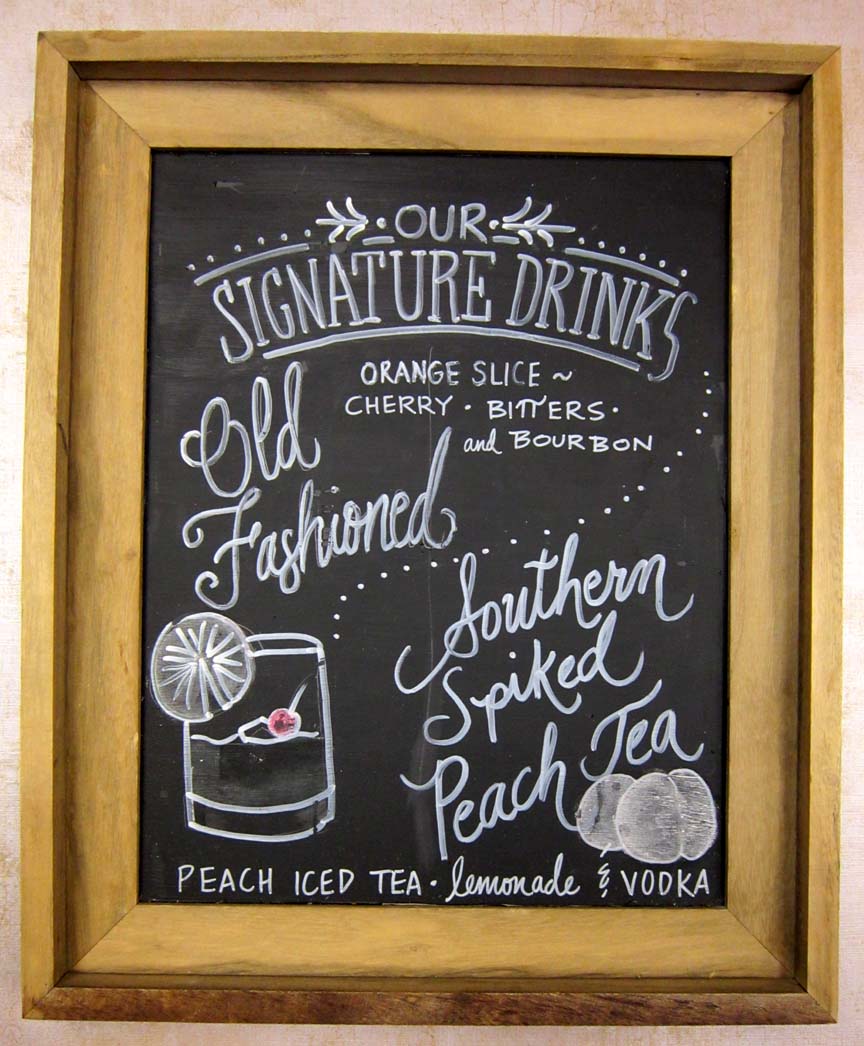 OUR
SIGNATURE DRINKS
ORANGE SLICE ~
CHERRY · BITTERS ·
and BOURBON
Old
Fashioned
Southern
Spiked
Peach Tea
PEACH ICED TEA · lemonade & VODKA